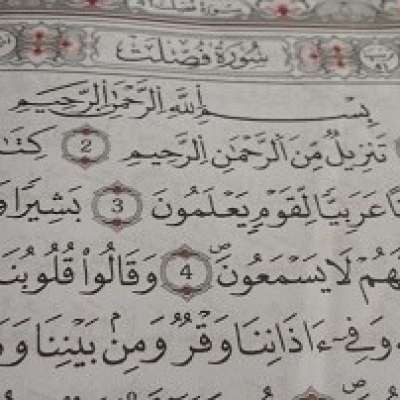 سُورَةُ فُصِّلَتْ
بِسْمِ اللَّهِ الرَّحْمَٰنِ الرَّحِيمِ
تَنزِيلٌ مِّنَ الرَّحْمَٰنِ الرَّحِيمِ 2
عَرَبِيًّا لِّقَوْمٍ يَعْلَمُونَ 3 بَشِيرًا
لَا يَسْمَعُونَ 4 وَقَالُوا قُلُوبُنَا
وَفِي ءَاذَانِنَا وَقْرٌ وَمِن بَيْنِنَا